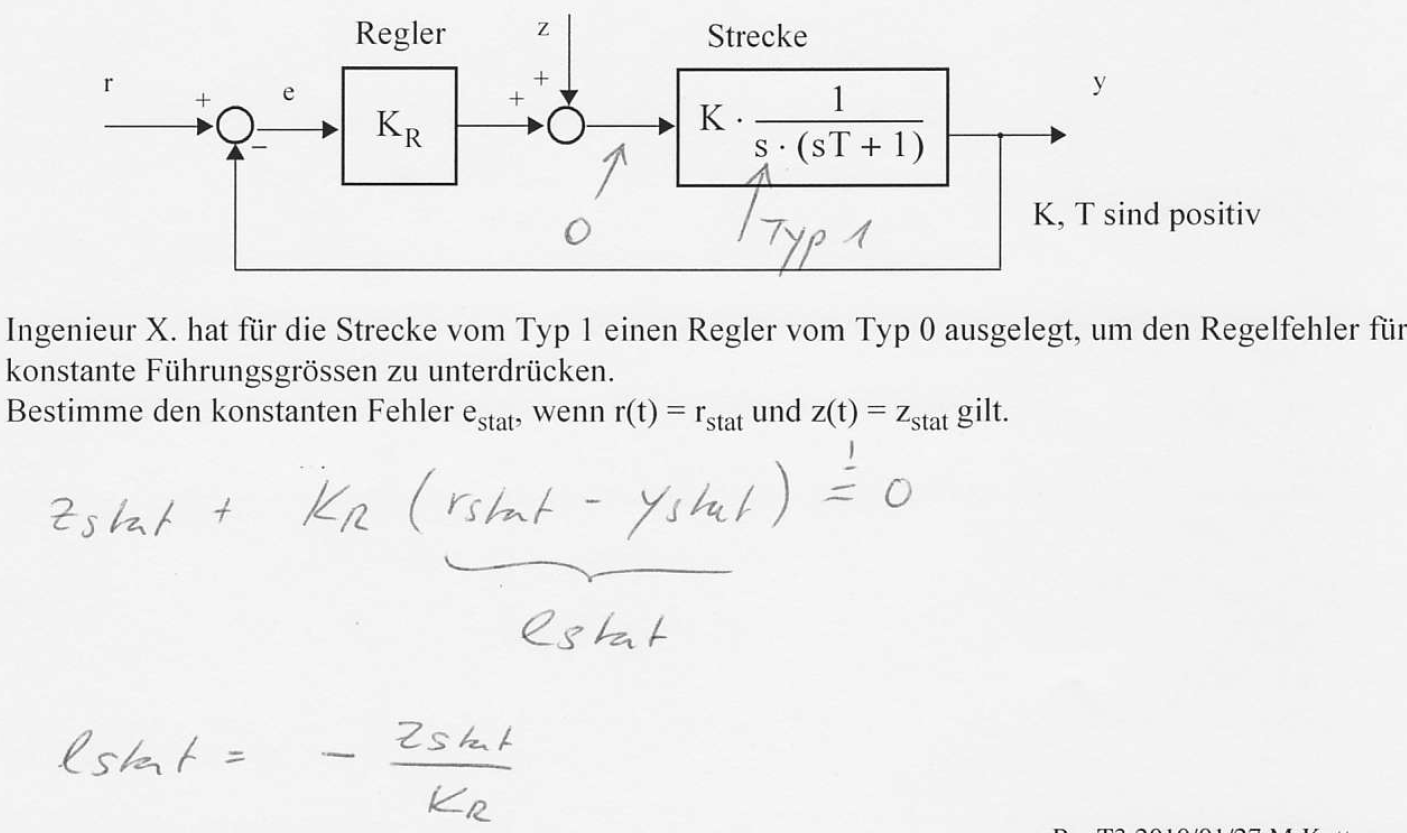 Regler z Strecke
r + e + + y
K_R K · 1 / (s · (sT + 1))
−
0 Typ 1 K, T sind positiv
Ingenieur X. hat für die Strecke vom Typ 1 einen Regler vom Typ 0 ausgelegt, um den Regelfehler für
konstante Führungsgrössen zu unterdrücken.
Bestimme den konstanten Fehler e_stat, wenn r(t) = r_stat und z(t) = z_stat gilt.
zstat + K_R (rstat - ystat) =! 0
estat
estat = - zstat / K_R